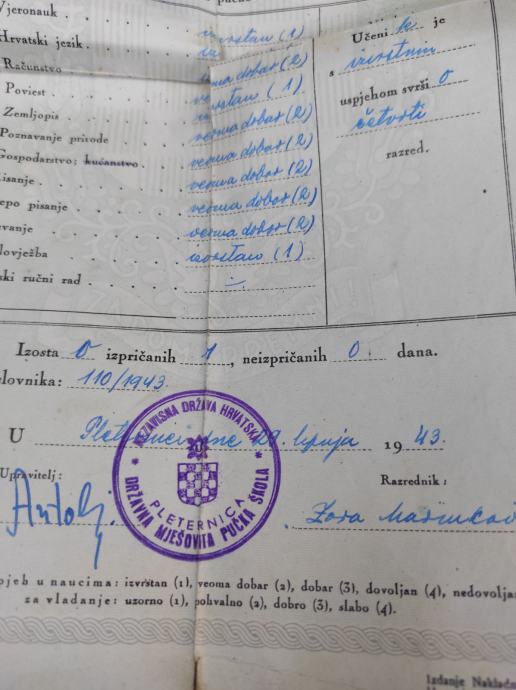 Vjeronauk izvrstan (1)
Hrvatski jezik
Računstvo veoma dobar (2)
Poviest izvrstan (1)
Zemljopis veoma dobar (2)
Poznavanje prirode veoma dobar (2)
Gospodarstvo; kućanstvo veoma dobar (2)
isanje veoma dobar (2)
epo pisanje veoma dobar (2)
vanje veoma dobar (2)
lovježba izvrstan (1)
ski ručni rad —
Učeni k je
s izvrstnim
uspjehom svrši o
četvrti
razred.
Izosta 0 izpričanih 1, neizpričanih 0 dana.
lovnika: 110/1943.
U Pleternici dne 29. lipnja 1943.
NEZAVISNA DRŽAVA HRVATSKA
PLETERNICA
DRŽAVNA MJEŠOVITA PUČKA ŠKOLA
Upravitelj: Razrednik:
Zora
pjeh u naucima: izvrstan (1), veoma dobar (2), dobar (3), dovoljan (4), nedovoljan
za vladanje: uzorno (1), pohvalno (2), dobro (3), slabo (4).
Izdanje Nakladn